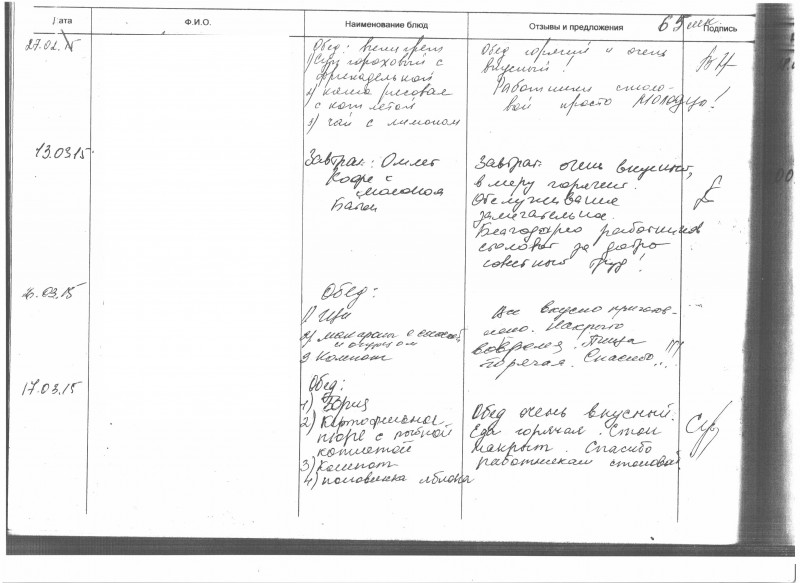 Дата
Ф.И.О.
Наименование блюд
Отзывы и предложения
65 шк.
Подпись
27.02.15
Обед: винегрет
1) Суп гороховый с
фрикаделькой
2) каша рисовая
с котлетой
3) чай с лимоном
Обед горячий и очень
вкусный!
Работники столо-
вой просто молодцы!
13.03.15
Завтрак: Омлет
Кофе с
молоком
Батон
Завтрак очень вкусный,
в меру горячий.
Обслуживание
замечательное.
Благодарю работников
столовой за добро
совестный труд!
03.15
Обед:
1) Щи
2) макароны с
3 Компот
Все вкусно приготов-
лено. Накрыто
вовремя. Пища
горячая. Спасибо...!!!
17.03.15
Обед:
1) Борщ
2) Картофельное
пюре с рыбной
котлетой
3) Компот
4) половинка яблока
Обед очень вкусный.
Еда горячая. Стол
накрыт. Спасибо
работникам столовой